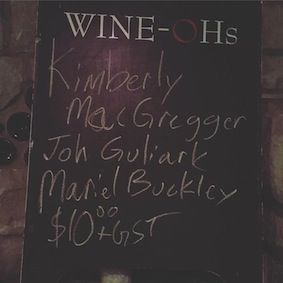 WINE-OHs
Kimberly
MacGregger
Joh Guliark
Mariel Buckley
$10.00+GST